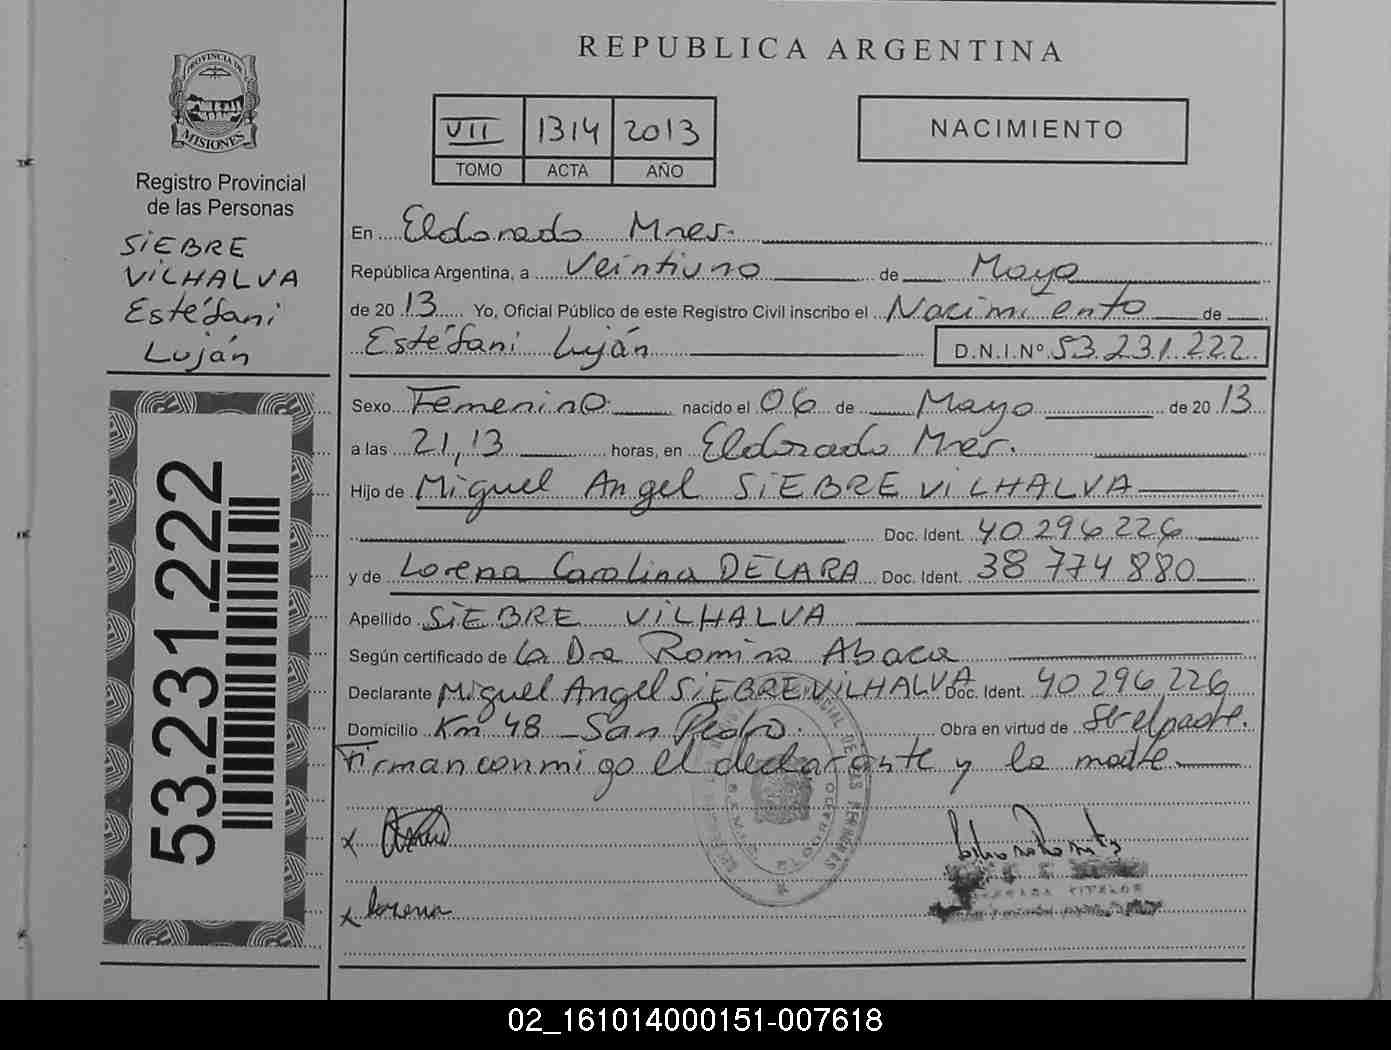 PROVINCIA DE
MISIONES
Registro Provincial
de las Personas
SIEBRE
VILHALVA
Estéfani
Luján
53.231.222
REPUBLICA ARGENTINA
VII 1314 2013
TOMO ACTA AÑO
NACIMIENTO
En Eldorado Mnes.
República Argentina, a Veintiuno de Mayo
de 20 13 Yo, Oficial Público de este Registro Civil inscribo el Nacimiento de
Estéfani Luján D.N.I.Nº 53.231.222
Sexo Femenino nacido el 06 de Mayo de 20 13
a las 21,13 horas, en Eldorado Mnes.
Hijo de Miguel Angel SIEBRE VILHALVA
Doc. Ident. 40 296 226
y de Lorena Carolina DELARA Doc. Ident. 38 774 880
Apellido SIEBRE VILHALVA
Según certificado de La Dra Romina Abaca
Declarante Miguel Angel SIEBRE VILHALVA Doc. Ident. 40 296 226
Domicilio Km 48 - San Pedro. Obra en virtud de Ser el padre.
Firman conmigo el declarante y la madre
x
x Lorena
02_161014000151-007618